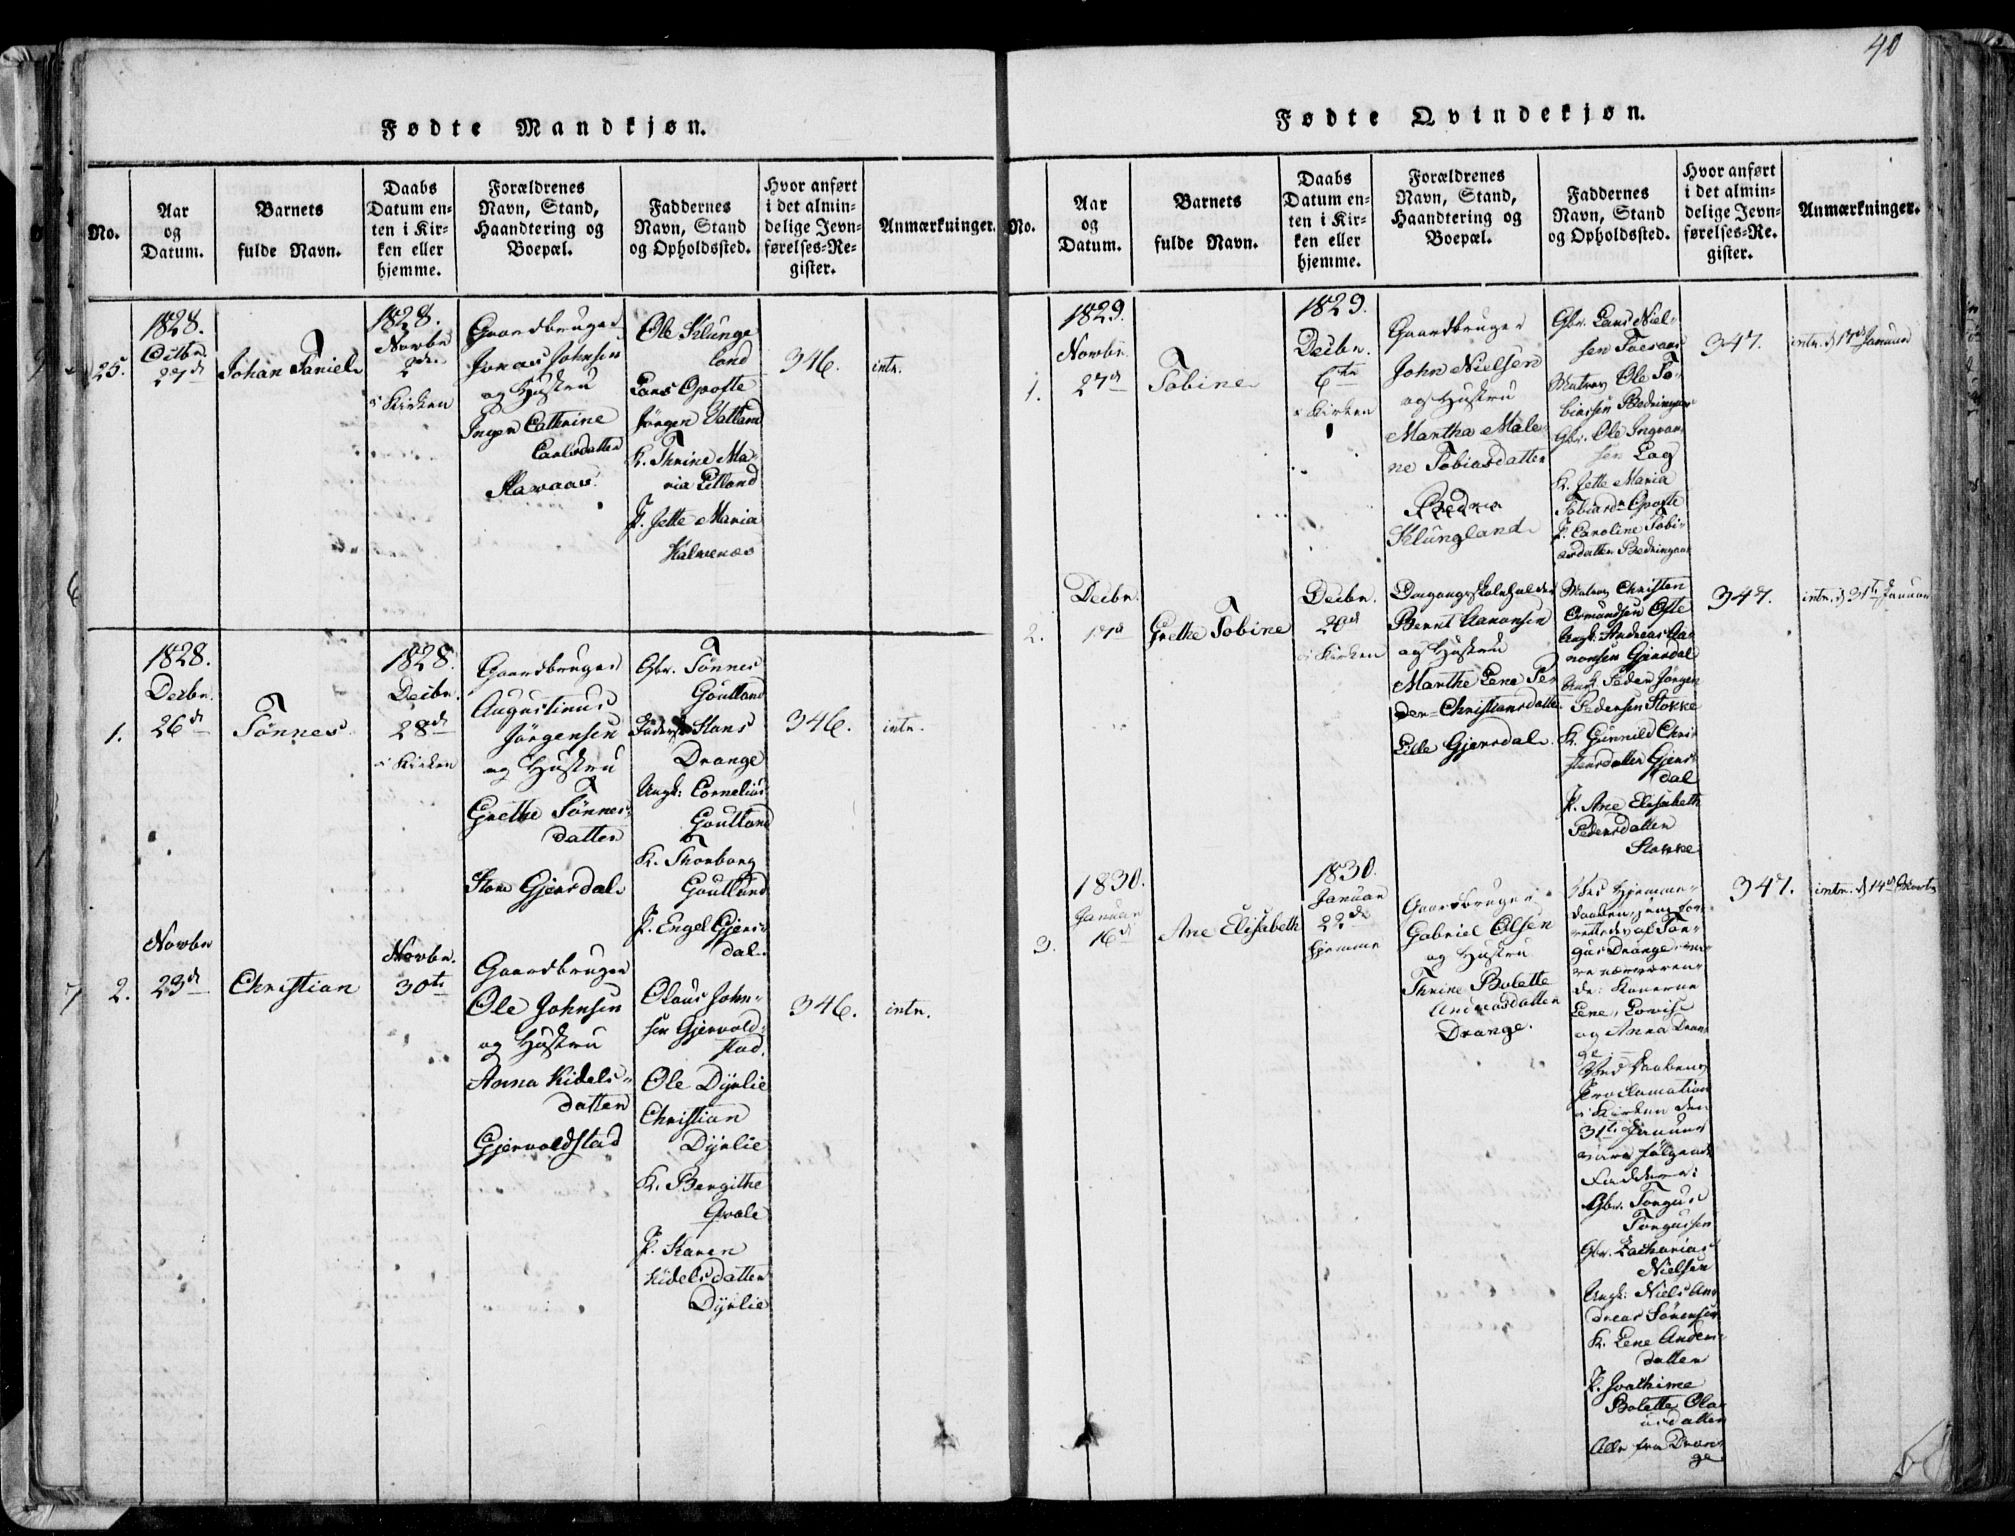 40
Fødte Mandkjøn.
No.
Aar
og
Datum.
Barnets
fulde Navn.
Daabs
Datum en-
ten i Kir-
ken eller
hjemme.
Forældrenes
Navn, Stand,
Haandtering og
Boepæl.
Faddernes
Navn, Stand
og Opholdssted.
Hvor anført
i det almin-
delige Jevn-
førelses-Re-
gister.
Anmærkninger.
25.
1828.
Octbr.
27de
Johan Daniel
1828.
Novbr
2den
i Kirken
Gaardbruger
Jonas Johnsen
og Hustru
Inger Cathrine
Carlsdatter
Ole Klunge
land
Lars Opofte
Jörgen Vatland
K. Thrine Ma-
ria Eitland
P. Jette Maria
Kalvenæs
346.
intr.
1.
1828.
Decbr.
26de
Tönnes
1828.
Decbr.
28de
i Kirken
Gaardbruger
Augustinus
Jörgensen
og Hustru
Grethe Tönnes-
datter
Store Gjersdal
Gbr. Tönnes
Goutland
Hans
Drange
Ungk: Cornelius
Goutland
K. Thorborg
Goutland
P. Engel Gjers-
dal.
346.
intr.
2.
Novbr
23de
Christian
Novbr.
30te
Gaardbruger
Ole Johnsen
og Hustru
Anna Kidels-
datter
Gjervoldstad
Olaus John-
sen Gjervold-
stad.
Ole Dyrlie
Christian
Dyrlie
K. Bergithe
Qvale
P. Karen
Kidelsdatter
Dyrlie
346.
intr.
Fødte Qvindekjøn.
No.
Aar
og
Datum.
Barnets
fulde Navn.
Daabs
Datum en-
ten i Kir-
ken eller
hjemme.
Forældrenes
Navn, Stand,
Haandtering og
Boepæl.
Faddernes
Navn, Stand
og Opholdssted.
Hvor anført
i det almin-
delige Jevn-
førelses-Re-
gister.
Anmærkninger.
1.
1829.
Novbr.
27de
Tobine
1829.
Decbr.
6te
i Kirken
Gaardbruger
John Nielsen
og Hustru
Martha Male-
ne Tobiasdatter
Klungland
Gbr. Lars Niel-
sen
Matros Ole To-
biassen
Gbr. Ole Ingvar-
sen Log
K. Jette Maria
Tobiasdr Opofte
P. Caroline Tobi-
asdatter
347.
intr. d 17de Januar
2.
Decbr.
17de
Grethe Tobine
Decbr.
20de
i Kirken
Omgangsskoleholder
Bernt Aanonsen
og Hustru
Marthe Lene Pe-
der-Christiansdatter
Lille Gjersdal.
Matros Christen
Osmundsen Ofte
Ungk. Andreas Aa-
nonsen Gjersdal
Ungk. Peder Jörgen
Pedersen Stokke
K. Gunnild Chri-
stensdatter Gjers-
dal
P. Ane Elisabeth
Pedersdatter
Stokke
347.
intr. d 31te Januar
3.
1830.
Januar
16de
Ane Elisabeth
1830.
Januar
22de
hjemme
Gaardbruger
Gabriel Olsen
og Hustru
Thrine Bolette
Andreasdatter
Drange.
Ved Hjemme-
daaben, som for-
rettedes af Tor-
gus Drange, va-
re nærværen-
de: Konerne
Lene, Lovise
og Anna Dran-
ge
Ved Daabens
Proclamation
i Kirken den
31te Januar
vare følgende
Faddere:
Gbr. Torgus
Torgussen
Gbr. Zacharias
Nielsen
Ungk: Niels An-
dreas Sörensen
K. Lene Anders-
datter
P. Joachime
Bolette Ola-
usdatter
Alle fra Dran-
ge
347.
intr. d 14de Marts